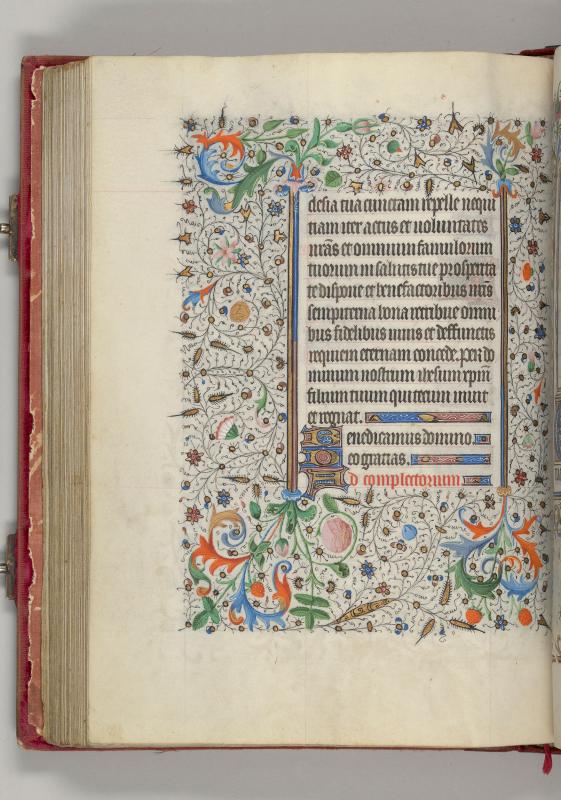 desia tua cunctam repelle nequi
tiam iter actus et uoluntates
nr̄as et omnium famulorum
tuorum in salutis tue prosperita
te dispone et benefactoribus nr̄is
sempiterna bona retribue omni
bus fidelibus uiuis et deffunctis
requiem eternam concede. per do
minum nostrum ihesum xp̄m
filium tuum qui tecum uiuit
et regnat.
Benedicamus domino.
Deo gracias.
Ad complectorium